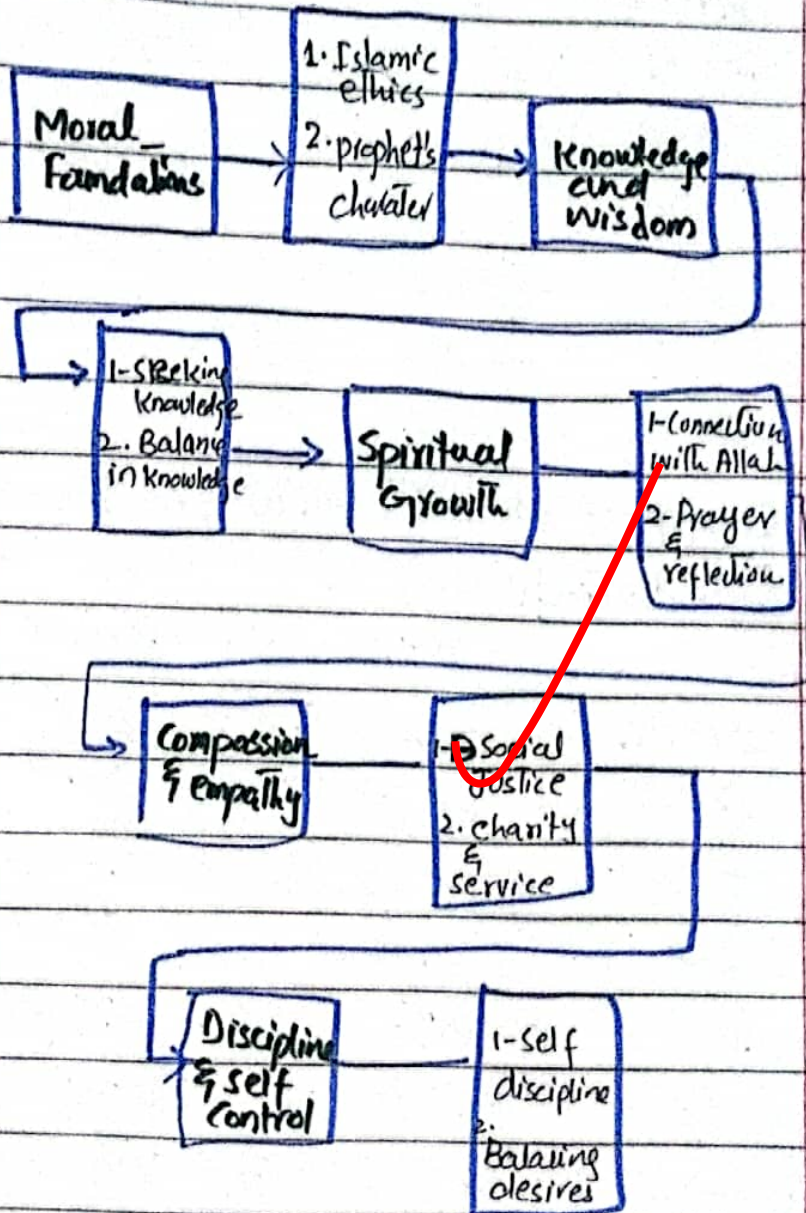 Moral
Foundations
1. Islamic
ethics
2. prophet's
charater
Knowledge
and
wisdom
1-Seeking
knowledge
2. Balance
in knowledge
Spiritual
Growth
1-Connection
with Allah
2-Prayer
&
reflection
Compassion
& empathy
1-Social
Justice
2. charity
&
service
Discipline
& self
control
1-self
discipline
2.
Balacing
desires